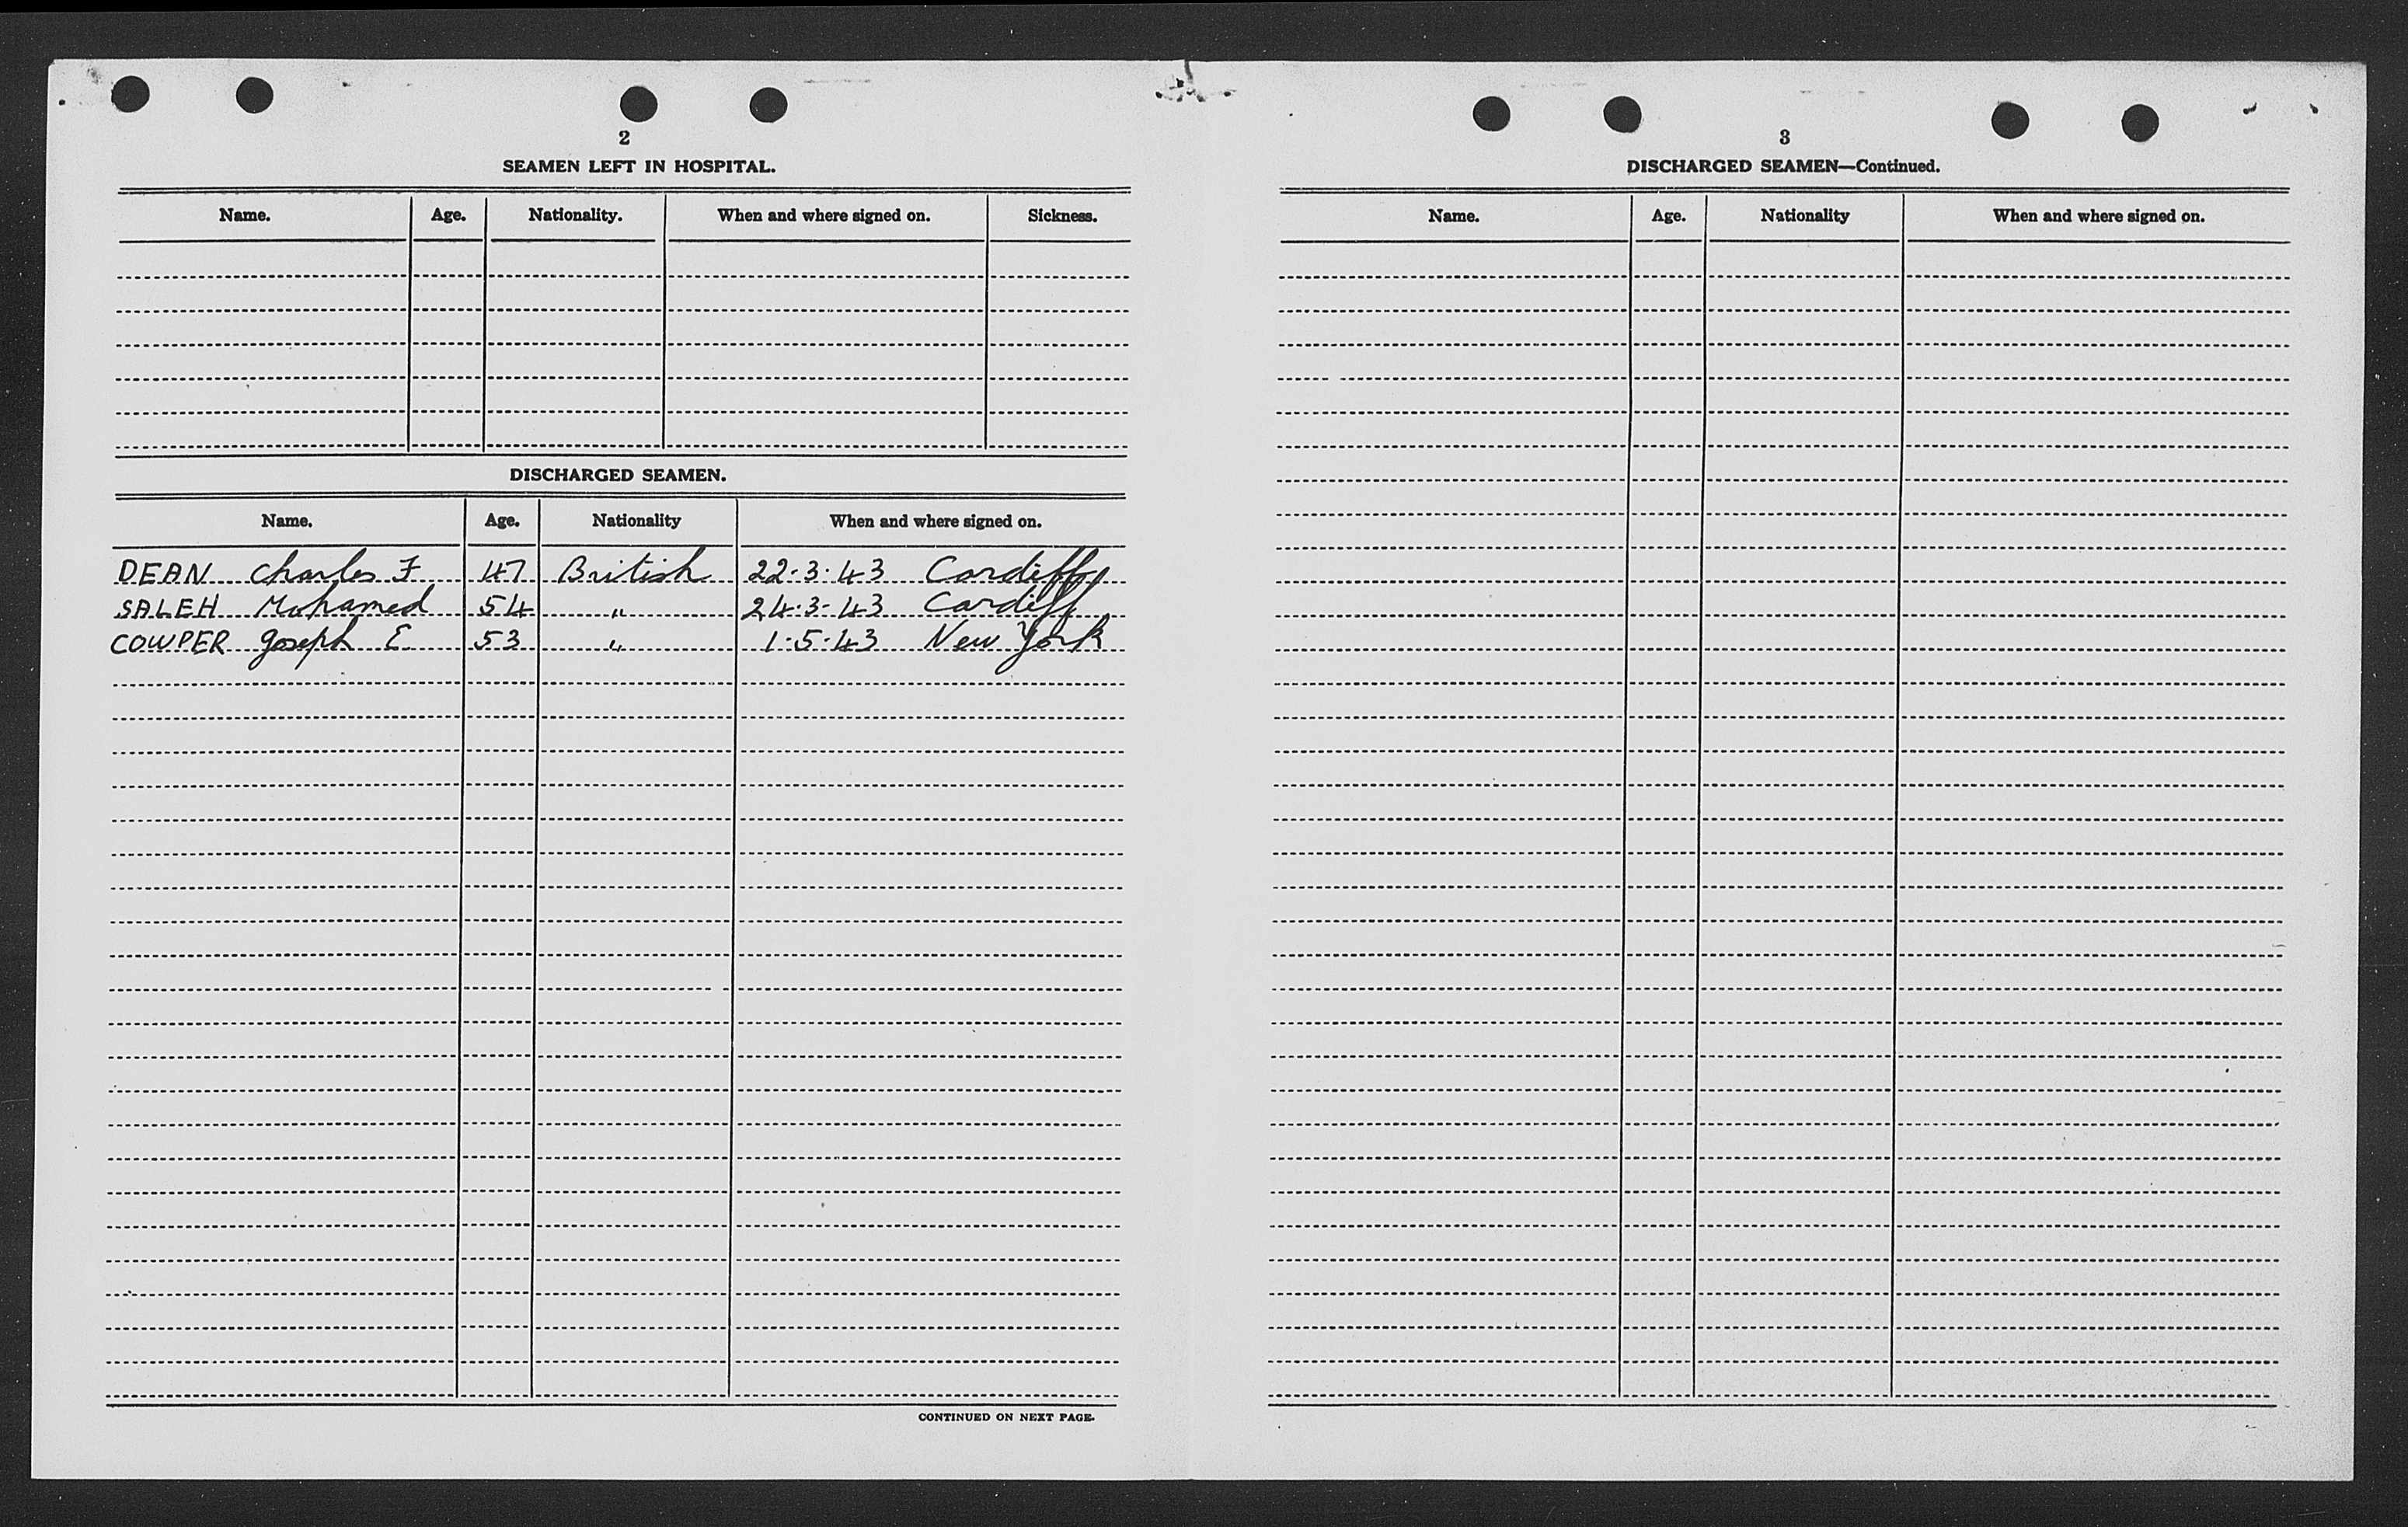 2
SEAMEN LEFT IN HOSPITAL.
Name. Age. Nationality. When and where signed on. Sickness.
DISCHARGED SEAMEN.
Name. Age. Nationality When and where signed on.
DEAN Charles F 47 British 22-3-43 Cardiff
SALEH Mohamed 54 " 24-3-43 Cardiff
COWPER Joseph E. 53 " 1-5-43 New York
CONTINUED ON NEXT PAGE.
3
DISCHARGED SEAMEN—Continued.
Name. Age. Nationality When and where signed on.